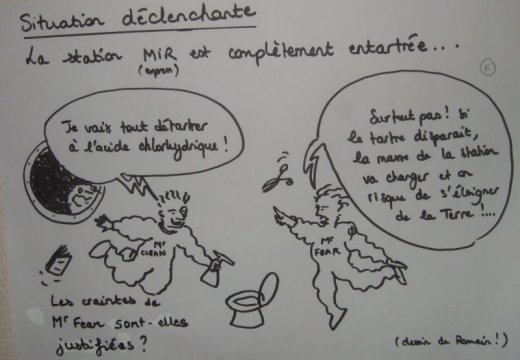 Situation déclenchante
La station MIR est complètement entartrée...
(espion)
Je vais tout détartrer
à l'acide chlorhydrique !
Surtout pas ! Si
le tartre disparait,
la masse de la station
va changer et on
risque de s'éloigner
de la Terre !...
Mr
CLEAN
Mr
FEAR
Les craintes de
Mr Fear sont-elles
justifiées ?
(dessin de Romain !)